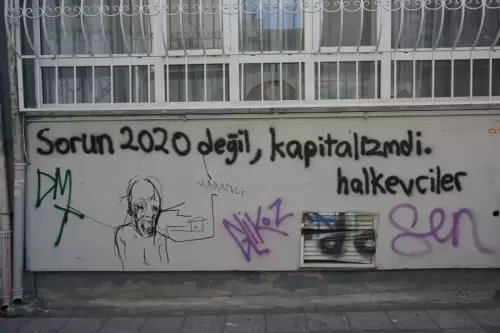 Sorun 2020 değil, kapitalizmdi.
halkevciler
DM
sen